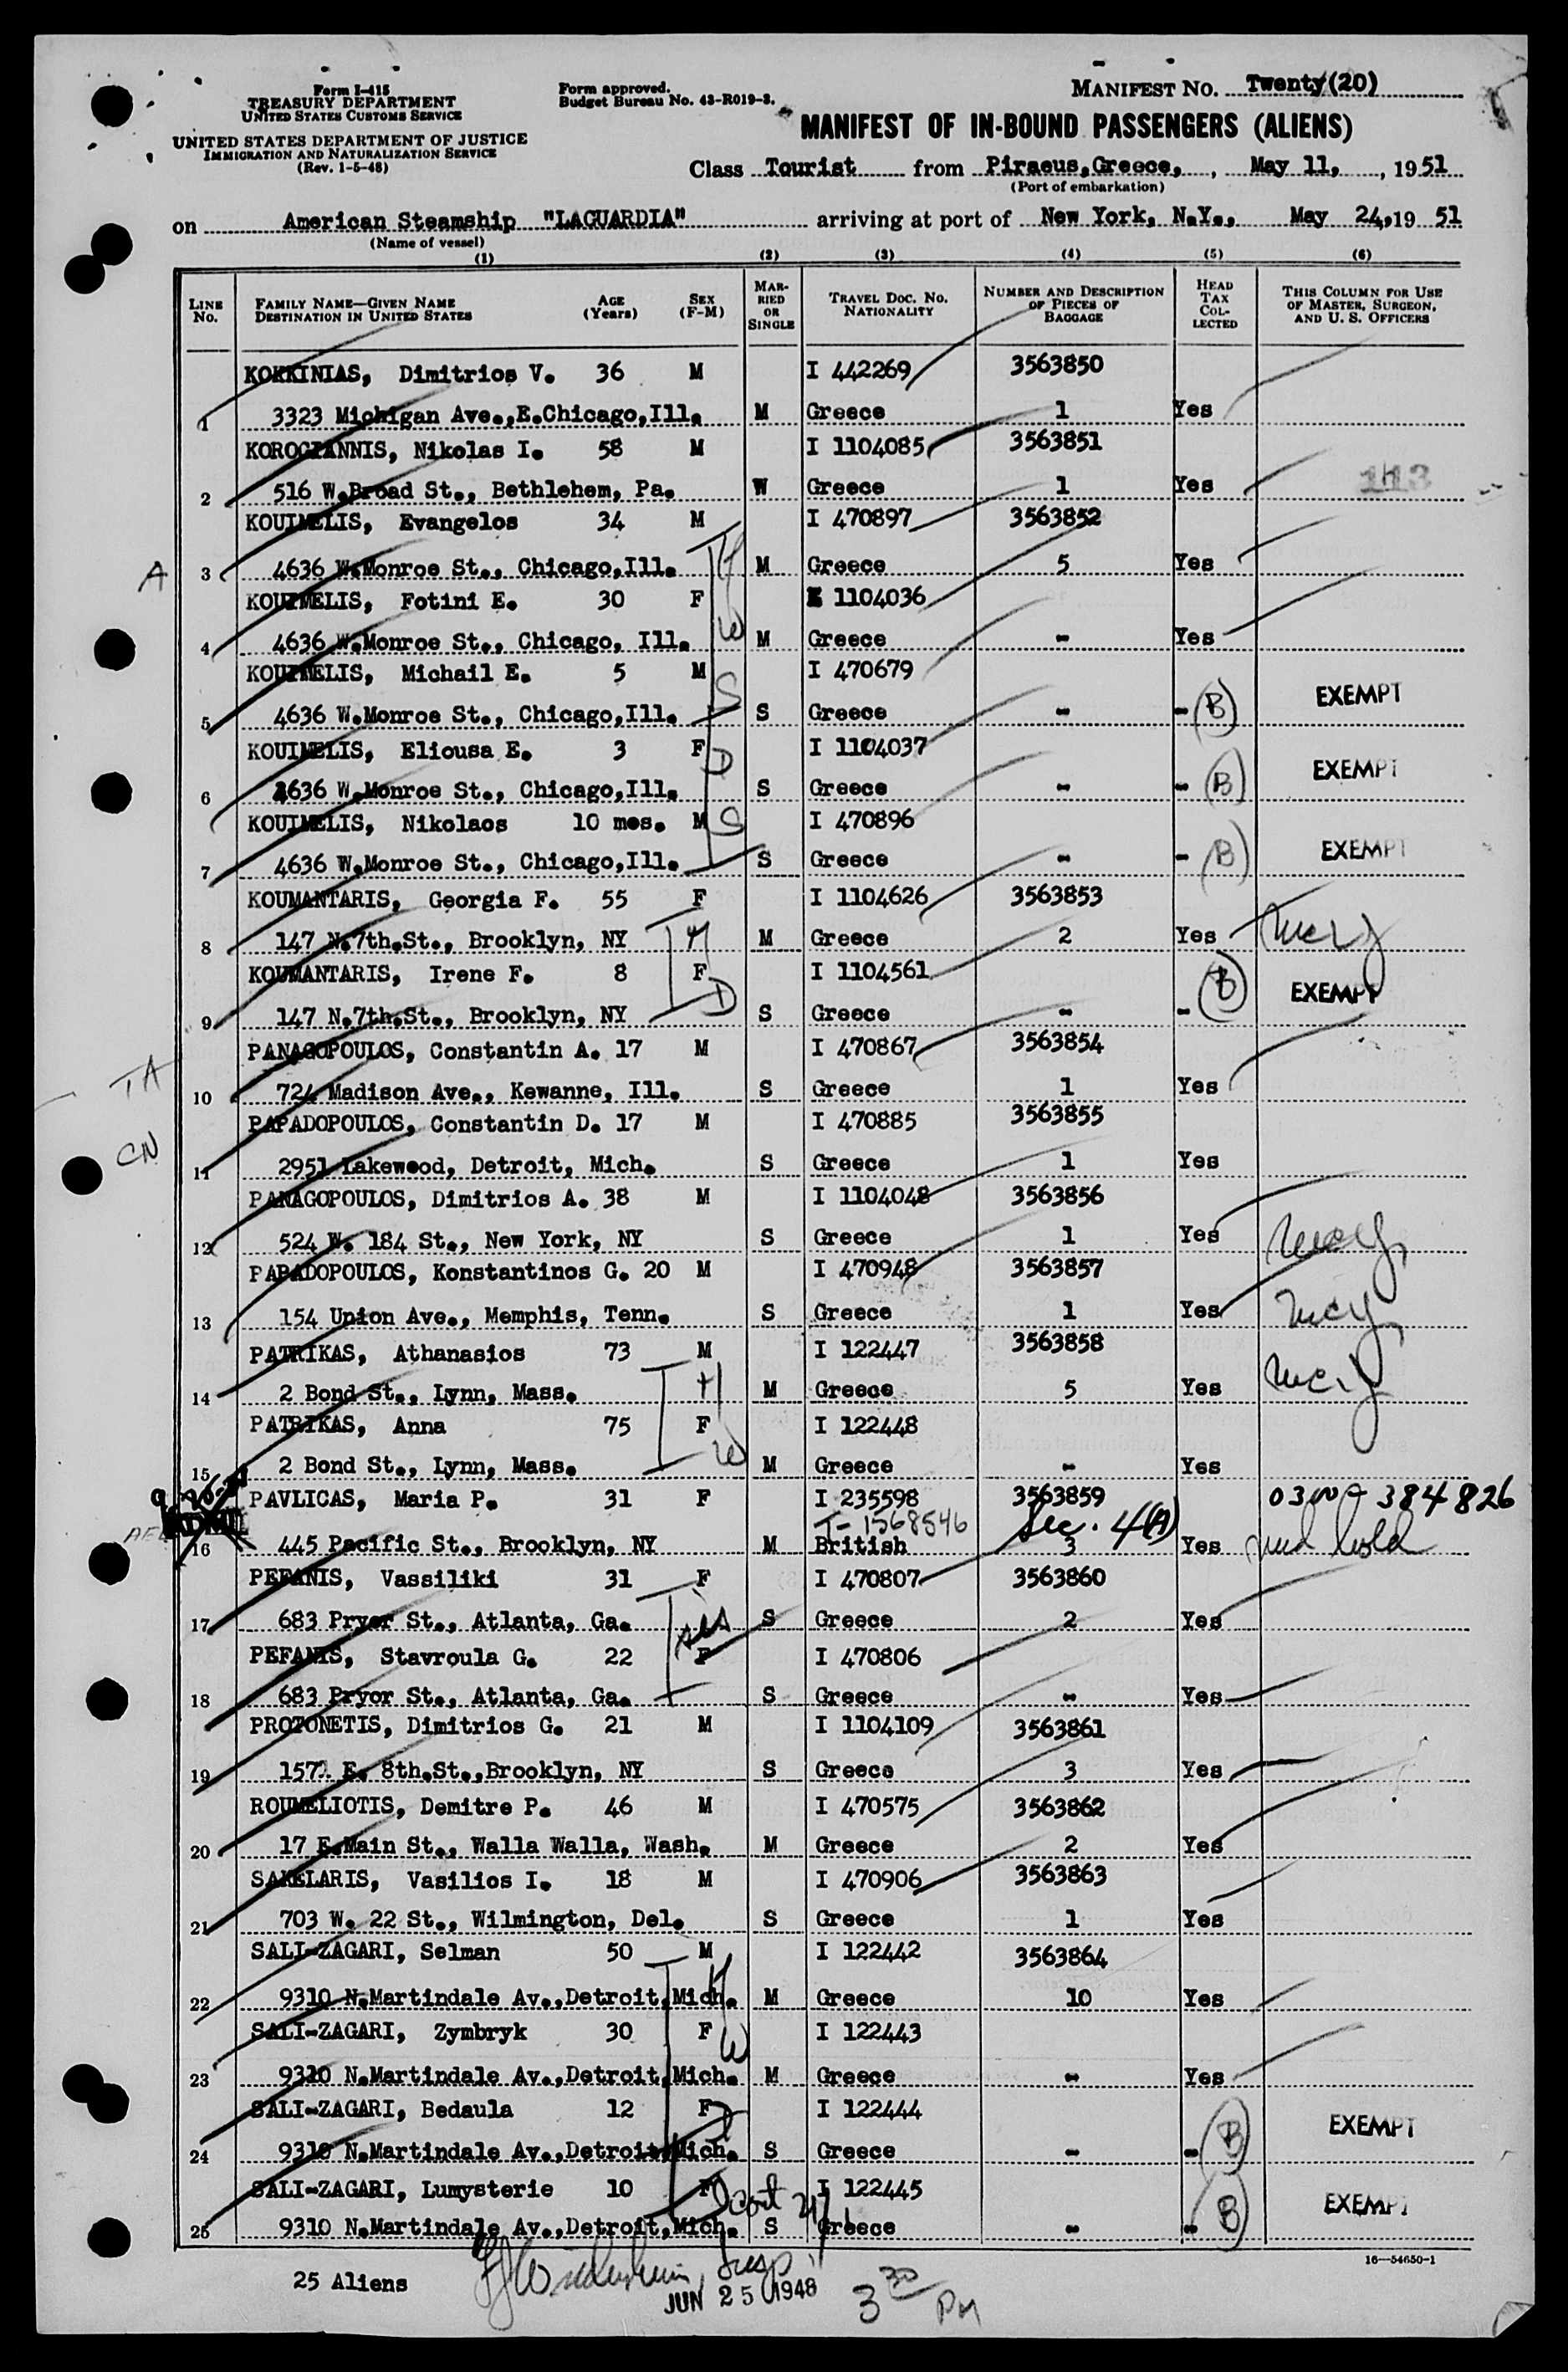 Form I-415
TREASURY DEPARTMENT
UNITED STATES CUSTOMS SERVICE
UNITED STATES DEPARTMENT OF JUSTICE
IMMIGRATION AND NATURALIZATION SERVICE
(Rev. 1-5-48)
Form approved.
Budget Bureau No. 43-R019-3.
MANIFEST NO. Twenty(20)
MANIFEST OF IN-BOUND PASSENGERS (ALIENS)
Class Tourist from Piraeus,Greece, , May 11, , 1951
(Port of embarkation)
on American Steamship "LAGUARDIA" arriving at port of New York, N.Y., May 24,19 51
(Name of vessel)
(1) (2) (3) (4) (5) (6)
LINE NO. FAMILY NAME—GIVEN NAME DESTINATION IN UNITED STATES AGE (Years) SEX (F-M) MARRIED OR SINGLE TRAVEL DOC. NO. NATIONALITY NUMBER AND DESCRIPTION OF PIECES OF BAGGAGE HEAD TAX COLLECTED THIS COLUMN FOR USE OF MASTER, SURGEON, AND U. S. OFFICERS
KOKKINIAS, Dimitrios V. 36 M I 442269 3563850
1 3323 Michigan Ave.,E.Chicago,Ill. M Greece 1 Yes
KOROGIANNIS, Nikolas I. 58 M I 1104085 3563851
2 516 W.Broad St., Bethlehem, Pa. W Greece 1 Yes 113
KOUIMELIS, Evangelos 34 M I 470897 3563852
A 3 4636 W.Monroe St., Chicago,Ill. H M Greece 5 Yes
KOUIMELIS, Fotini E. 30 F I 1104036
4 4636 W.Monroe St., Chicago, Ill. W M Greece - Yes
KOUIMELIS, Michail E. 5 M I 470679
5 4636 W.Monroe St., Chicago,Ill. S S Greece - - (B) EXEMPT
KOUIMELIS, Eliousa E. 3 F D I 1104037
6 4636 W.Monroe St., Chicago,Ill. S Greece - - (B) EXEMPT
KOUIMELIS, Nikolaos 10 mos. M S I 470896
7 4636 W.Monroe St., Chicago,Ill. S Greece - - (B) EXEMPT
KOUMANTARIS, Georgia F. 55 F I 1104626 3563853
8 147 N.7th.St., Brooklyn, NY M M Greece 2 Yes
KOUMANTARIS, Irene F. 8 F I 1104561
9 147 N.7th.St., Brooklyn, NY D S Greece - - (B) EXEMPT
PANAGOPOULOS, Constantin A. 17 M I 470867 3563854
TA 10 724 Madison Ave., Kewanne, Ill. S Greece 1 Yes
PAPADOPOULOS, Constantin D. 17 M I 470885 3563855
CN 11 2951 Lakewood, Detroit, Mich. S Greece 1 Yes
PANAGOPOULOS, Dimitrios A. 38 M I 1104048 3563856
12 524 W. 184 St., New York, NY S Greece 1 Yes
PAPADOPOULOS, Konstantinos G. 20 M I 470948 3563857
13 154 Union Ave., Memphis, Tenn. S Greece 1 Yes
PATRIKAS, Athanasios 73 M I 122447 3563858
14 2 Bond St., Lynn, Mass. H M Greece 5 Yes
PATRIKAS, Anna 75 F I 122448
15 2 Bond St., Lynn, Mass. W M Greece - Yes
PAVLICAS, Maria P. 31 F I 235598 3563859 0300-384826
T-1568546 Sec. 4(A)
16 445 Pacific St., Brooklyn, NY M British 3 Yes hold
PEFANIS, Vassiliki 31 F I 470807 3563860
17 683 Pryor St., Atlanta, Ga. sis S Greece 2 Yes
PEFANIS, Stavroula G. 22 F I 470806
18 683 Pryor St., Atlanta, Ga. S Greece - Yes
PROTONETIS, Dimitrios G. 21 M I 1104109 3563861
19 157 E. 8th.St.,Brooklyn, NY S Greece 3 Yes
ROUMELIOTIS, Demitre P. 46 M I 470575 3563862
20 17 E.Main St., Walla Walla, Wash. M Greece 2 Yes
SAKELARIS, Vasilios I. 18 M I 470906 3563863
21 703 W. 22 St., Wilmington, Del. S Greece 1 Yes
SALI-ZAGARI, Selman 50 M I 122442 3563864
22 9310 N.Martindale Av.,Detroit,Mich. H M Greece 10 Yes
SALI-ZAGARI, Zymbryk 30 F W I 122443
23 9310 N.Martindale Av.,Detroit,Mich. M Greece - Yes
SALI-ZAGARI, Bedaula 12 F D I 122444
24 9310 N.Martindale Av.,Detroit,Mich. S Greece - - (B) EXEMPT
SALI-ZAGARI, Lumysterie 10 F D I 122445
25 9310 N.Martindale Av.,Detroit,Mich. cont 21/1 S Greece - - (B) EXEMPT
16—54650-1
25 Aliens
Insp
JUN 25 1948
3 30 PM